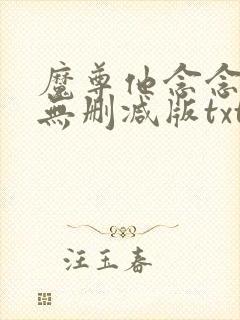 魔尊他念念
無删减版txt
汪玉春